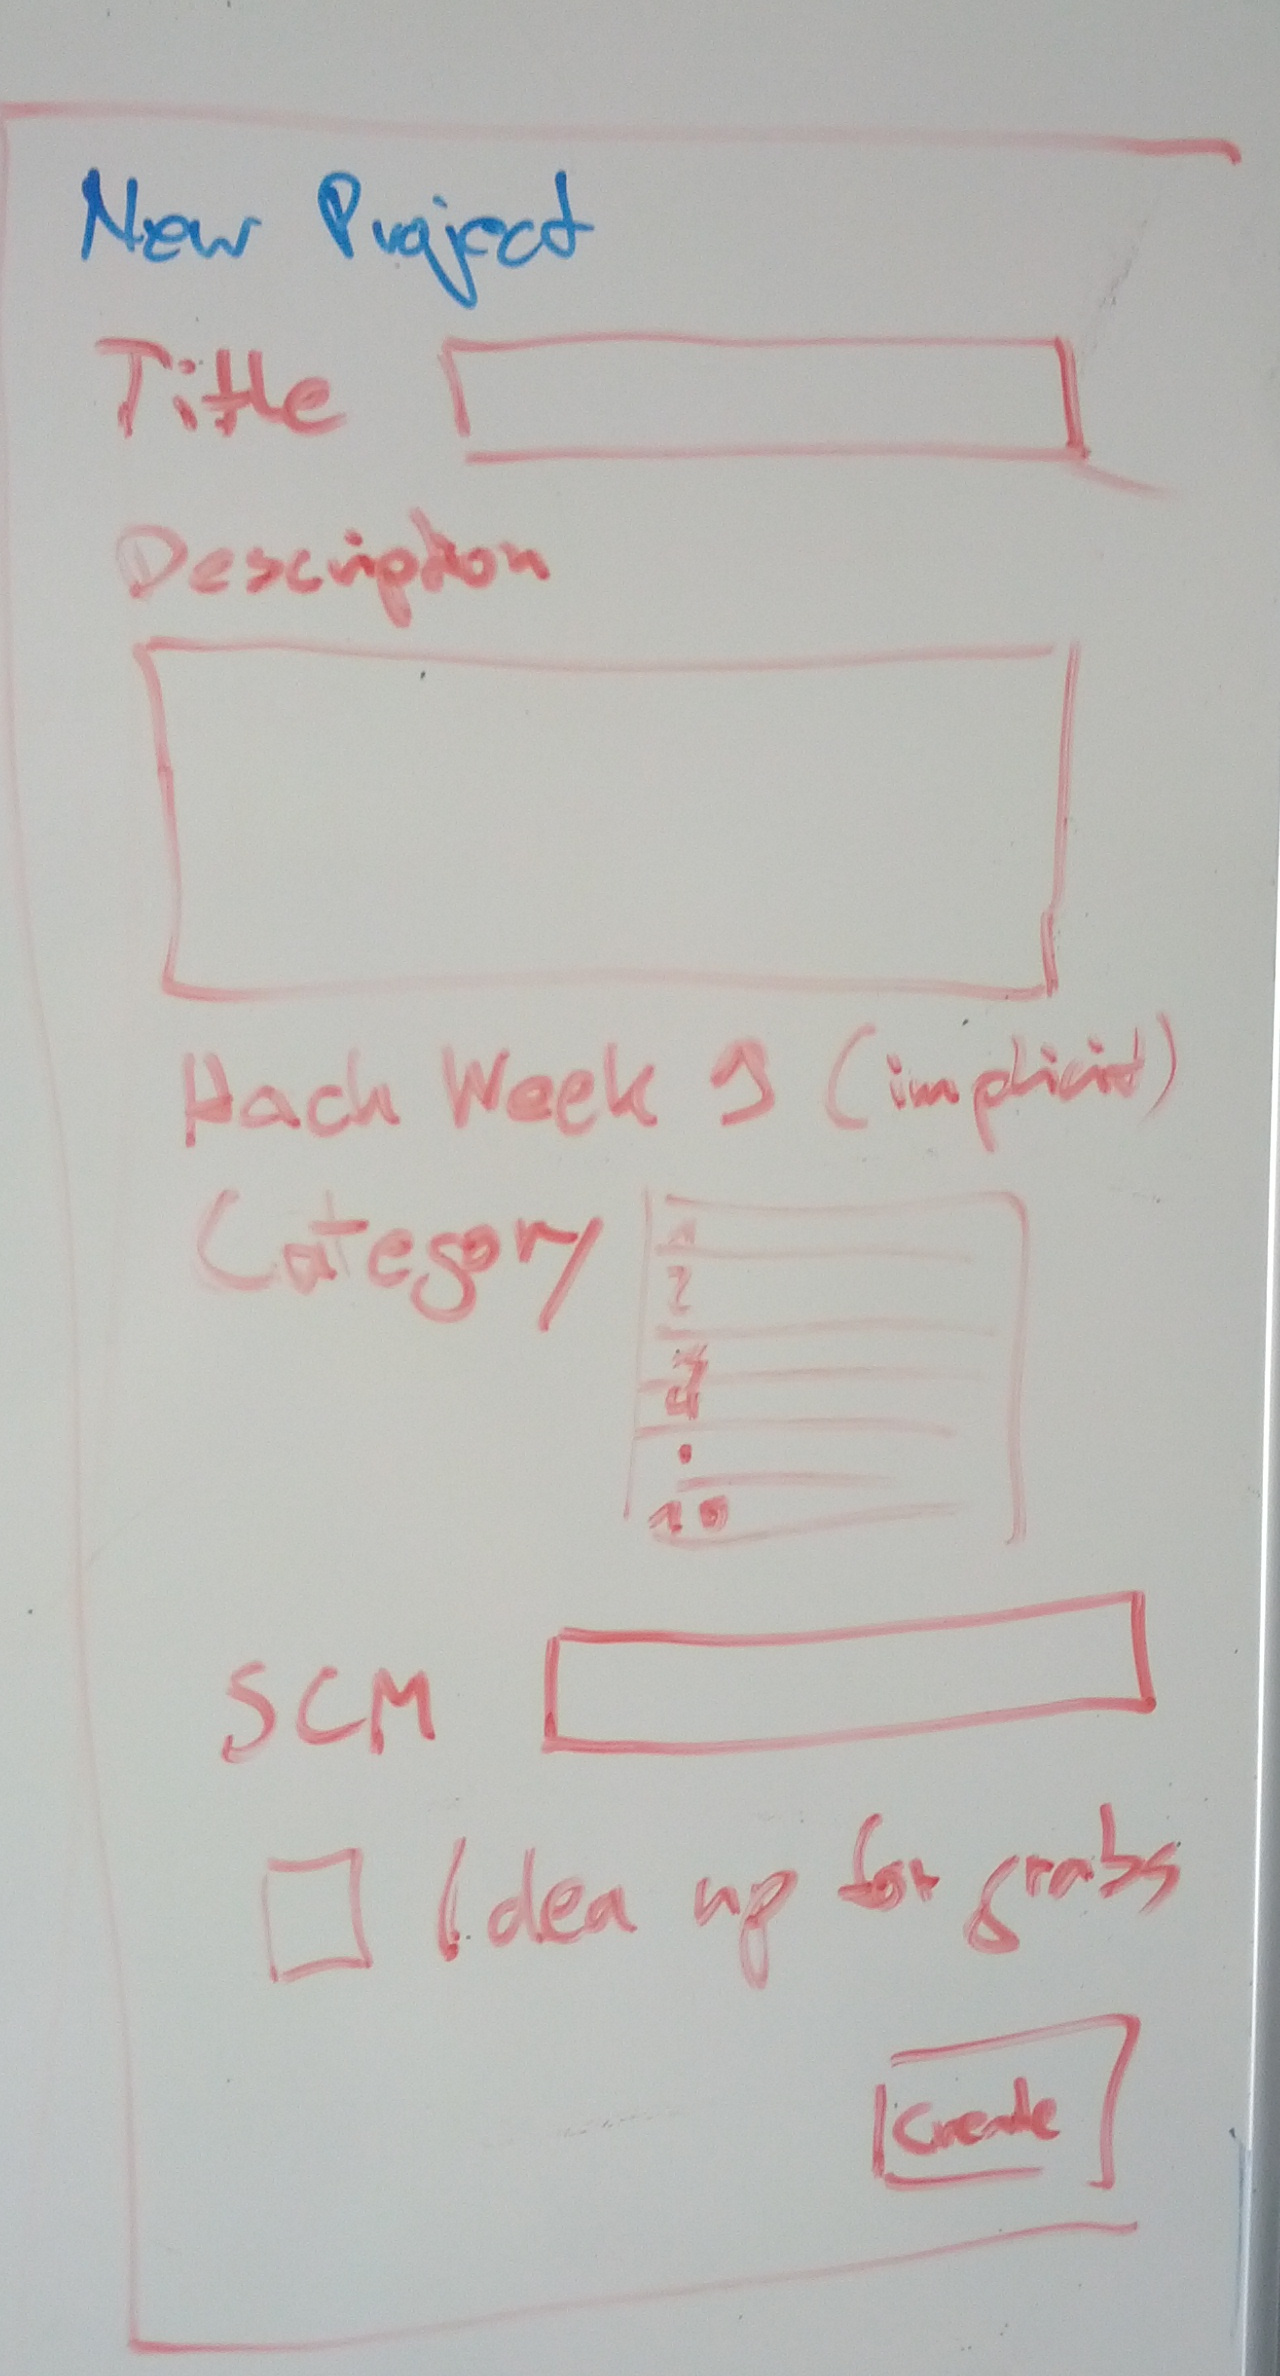 New Project
Title
Description
Hack Week 9 (implicit)
Category
1
2
4
10
SCM
Idea up for grabs
Create